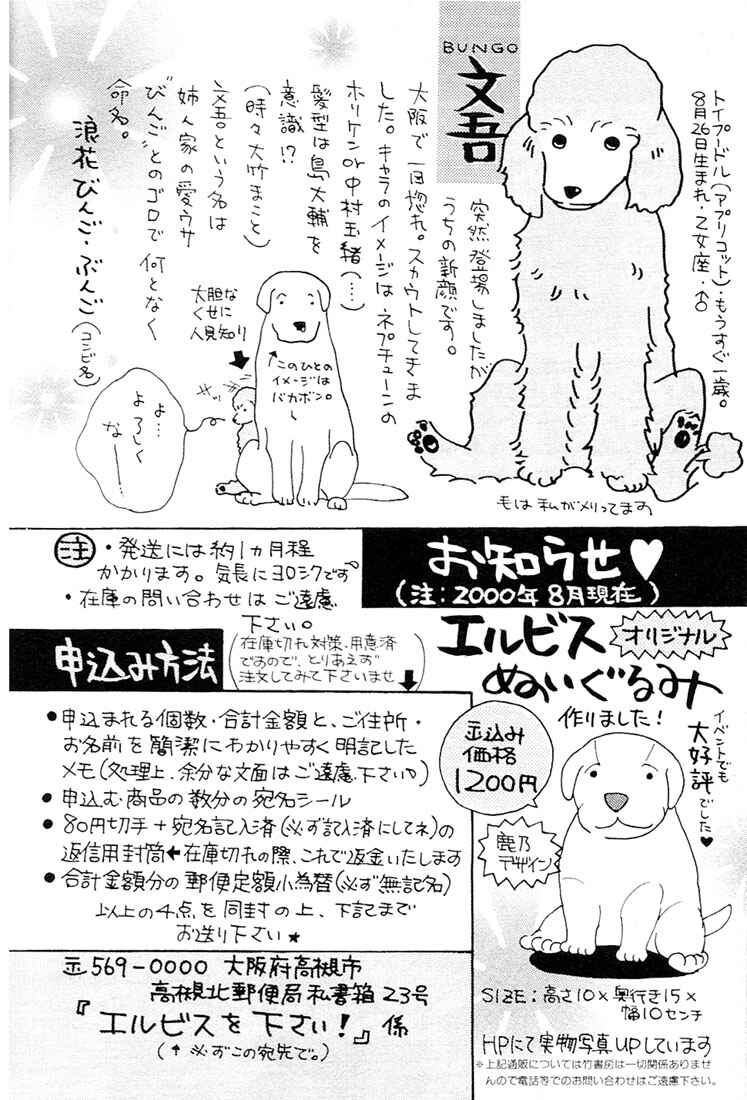 BUNGO
文吾
トイプードル(アプリコット)・もうすぐ一歳。
8月26日生まれ・乙女座・♂
突然登場しましたが
うちの新顔です。
大阪で一目惚れ。スカウトしてきま
した。キャラのイメージはネプチューンの
ホリケンor中村玉緒(…)
髪型は島大輔を
意識!?
(時々大竹まこと)
文吾という名は
姉人家の愛ウサ
"びんご"とのゴロで何となく
命名。
浪花びんご・ぶんご(コンビ名)
大胆な
くせに
人見知り
このひとの
イメージは
バカボン。
よ…
よろしく
なー
毛は私がメリってます
注
・発送には約1ヵ月程
かかります。気長にヨロシクです
・在庫の問い合わせはご遠慮
下さい。
お知らせ♥
(注:2000年8月現在)
申込み方法
(在庫切れ対策、用意済
ですので、とりあえず
注文してみて下さいませ)
●申込まれる個数・合計金額と、ご住所・
お名前を簡潔にわかりやすく明記した
メモ(処理上、余分な文面はご遠慮下さい)
●申込む商品の数分の宛名シール
●80円切手+宛名記入済(必ず記入済にしてネ)の
返信用封筒←在庫切れの際、これで返金いたします
●合計金額分の郵便定額小為替(必ず無記名)
以上の4点を同封の上、下記まで
お送り下さい★
〒569-0000 大阪府高槻市
高槻北郵便局私書箱23号
『エルビスを下さい!』係
(↑必ずこの宛先で。)
エルビス
オリジナル
ぬいぐるみ
作りました!
イベントでも
大好評でした♥
送込み
価格
1200円
鹿乃
デザイン
SIZE:高さ10×奥行き15×
幅10センチ
HPにて実物写真UPしています
※上記通販については竹書房は一切関係ありませ
んので電話等でのお問い合わせはご遠慮下さい。